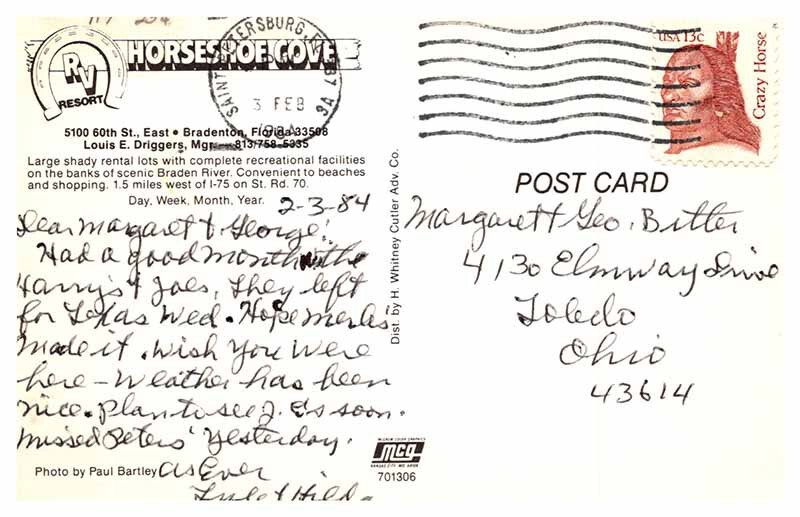 HORSESHOE COVE
RV
RESORT
5100 60th St., East • Bradenton, Florida 33508
Louis E. Driggers, Mgr. 813/758-5335
Large shady rental lots with complete recreational facilities
on the banks of scenic Braden River. Convenient to beaches
and shopping. 1.5 miles west of I-75 on St. Rd. 70.
Day, Week, Month, Year.
2-3-84
Dear Margaret & George:
Had a good month with the
Harry's & Joes, They left
for Texas Wed. Hope
Made it. Wish You Were
here - Weather has been
nice. Plan to see soon.
Missed Peters' Yesterday.
As Ever
Photo by Paul Bartley
Dist. by H. Whitney Cutler Adv. Co.
MCG
701306
SAINT PETERSBURG, FL
3 FEB
1984
USA 13c
Crazy Horse
POST CARD
Margaret & Geo. Bitter
4130 Elmway Drive
Toledo
Ohio
43614